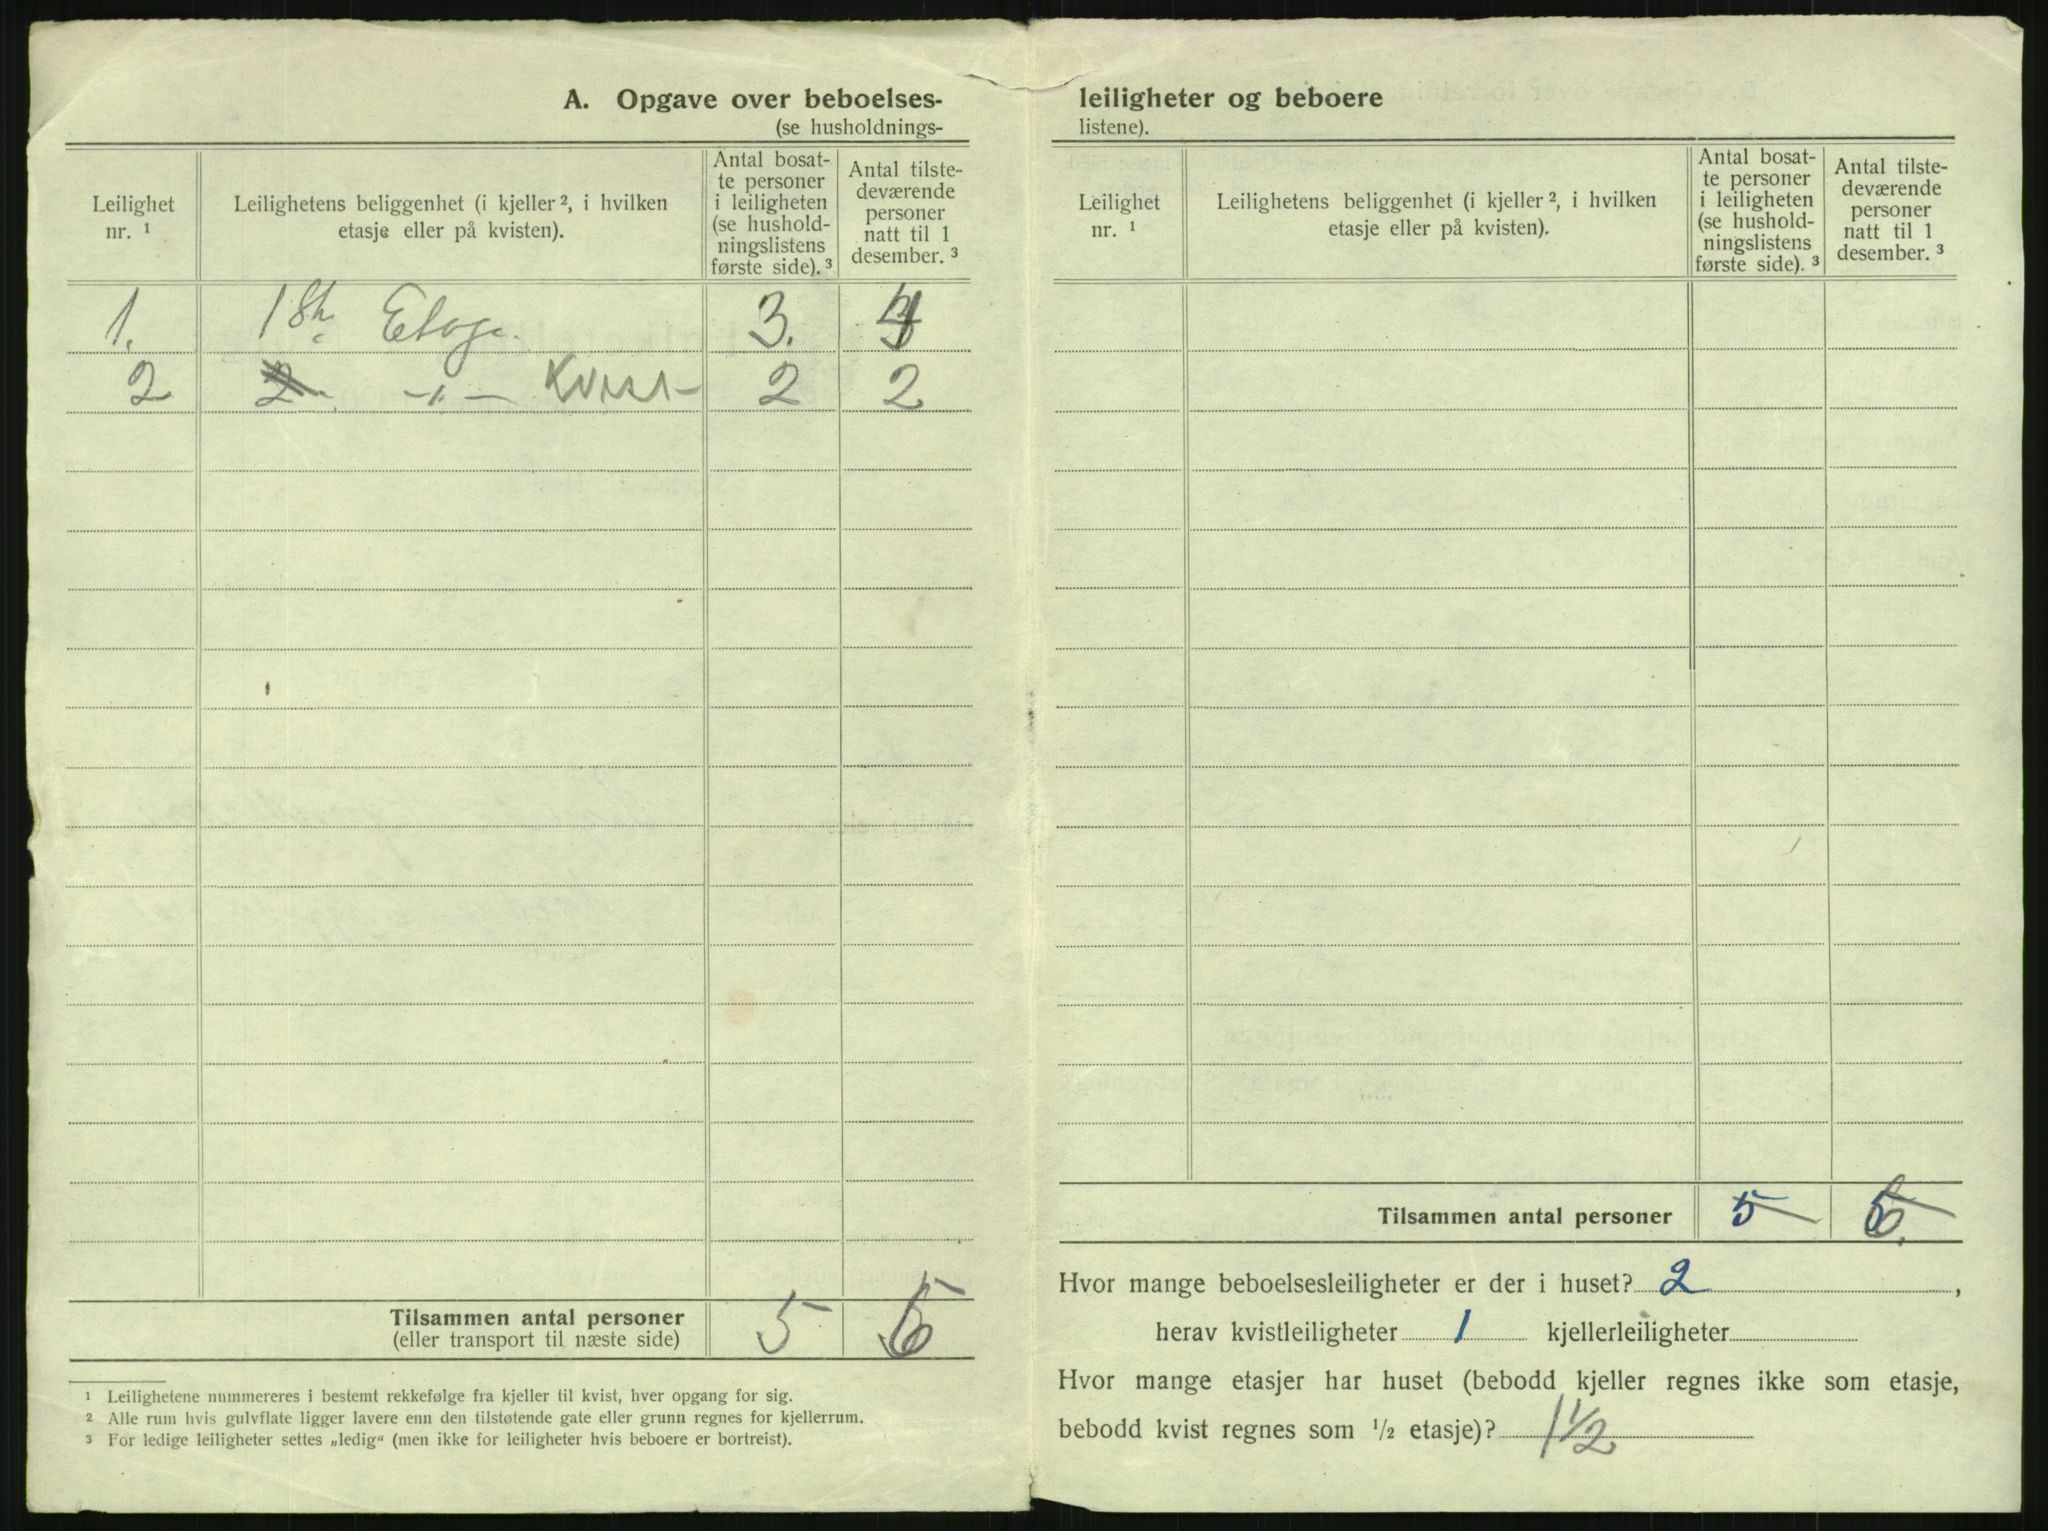 A. Opgave over beboelses-
(se husholdnings-
Leilighet nr. ¹
Leilighetens beliggenhet (i kjeller ², i hvilken etasje eller på kvisten).
Antal bosat-
te personer
i leiligheten
(se hushold-
ningslistens
første side). ³
Antal tilste-
deværende
personer
natt til 1
desember. ³
1. 1ste Etage. 3.
2 2. -"- Kvist 2 2
Tilsammen antal personer 5
(eller transport til næste side)
¹ Leilighetene nummereres i bestemt rekkefølge fra kjeller til kvist, hver opgang for sig.
² Alle rum hvis gulvflate ligger lavere enn den tilstøtende gate eller grunn regnes for kjellerrum.
³ For ledige leiligheter settes „ledig“ (men ikke for leiligheter hvis beboere er bortreist).
leiligheter og beboere
listene).
Leilighet nr. ¹
Leilighetens beliggenhet (i kjeller ², i hvilken etasje eller på kvisten).
Antal bosat-
te personer
i leiligheten
(se hushold-
ningslistens
første side). ³
Antal tilste-
deværende
personer
natt til 1
desember. ³
Tilsammen antal personer 5
Hvor mange beboelsesleiligheter er der i huset? 2 ,
herav kvistleiligheter 1 kjellerleiligheter
Hvor mange etasjer har huset (bebodd kjeller regnes ikke som etasje,
bebodd kvist regnes som ½ etasje)? 1½